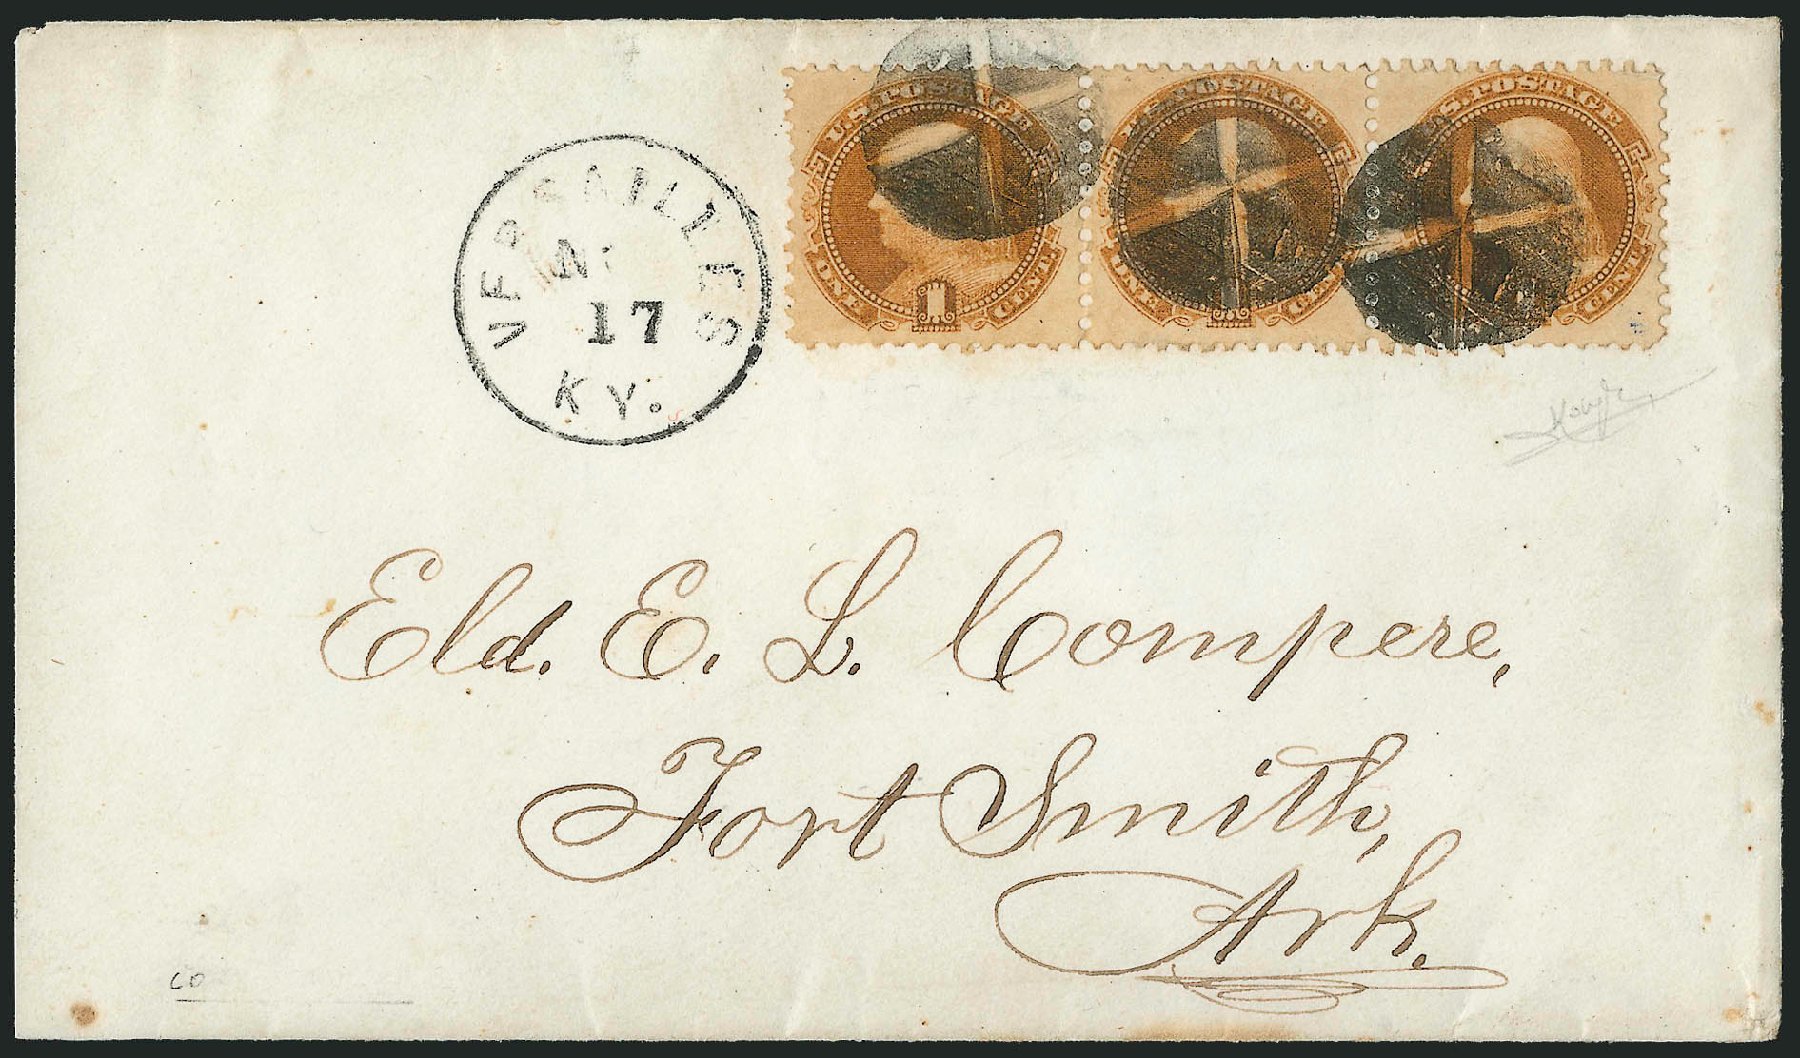 U.S. POSTAGE U.S. POSTAGE U.S. POSTAGE
ONE 1 CENT. ONE 1 CENT ONE CENT
VERSAILLES
17
KY.
Eld. E. L. Compere,
Fort Smith,
Ark.